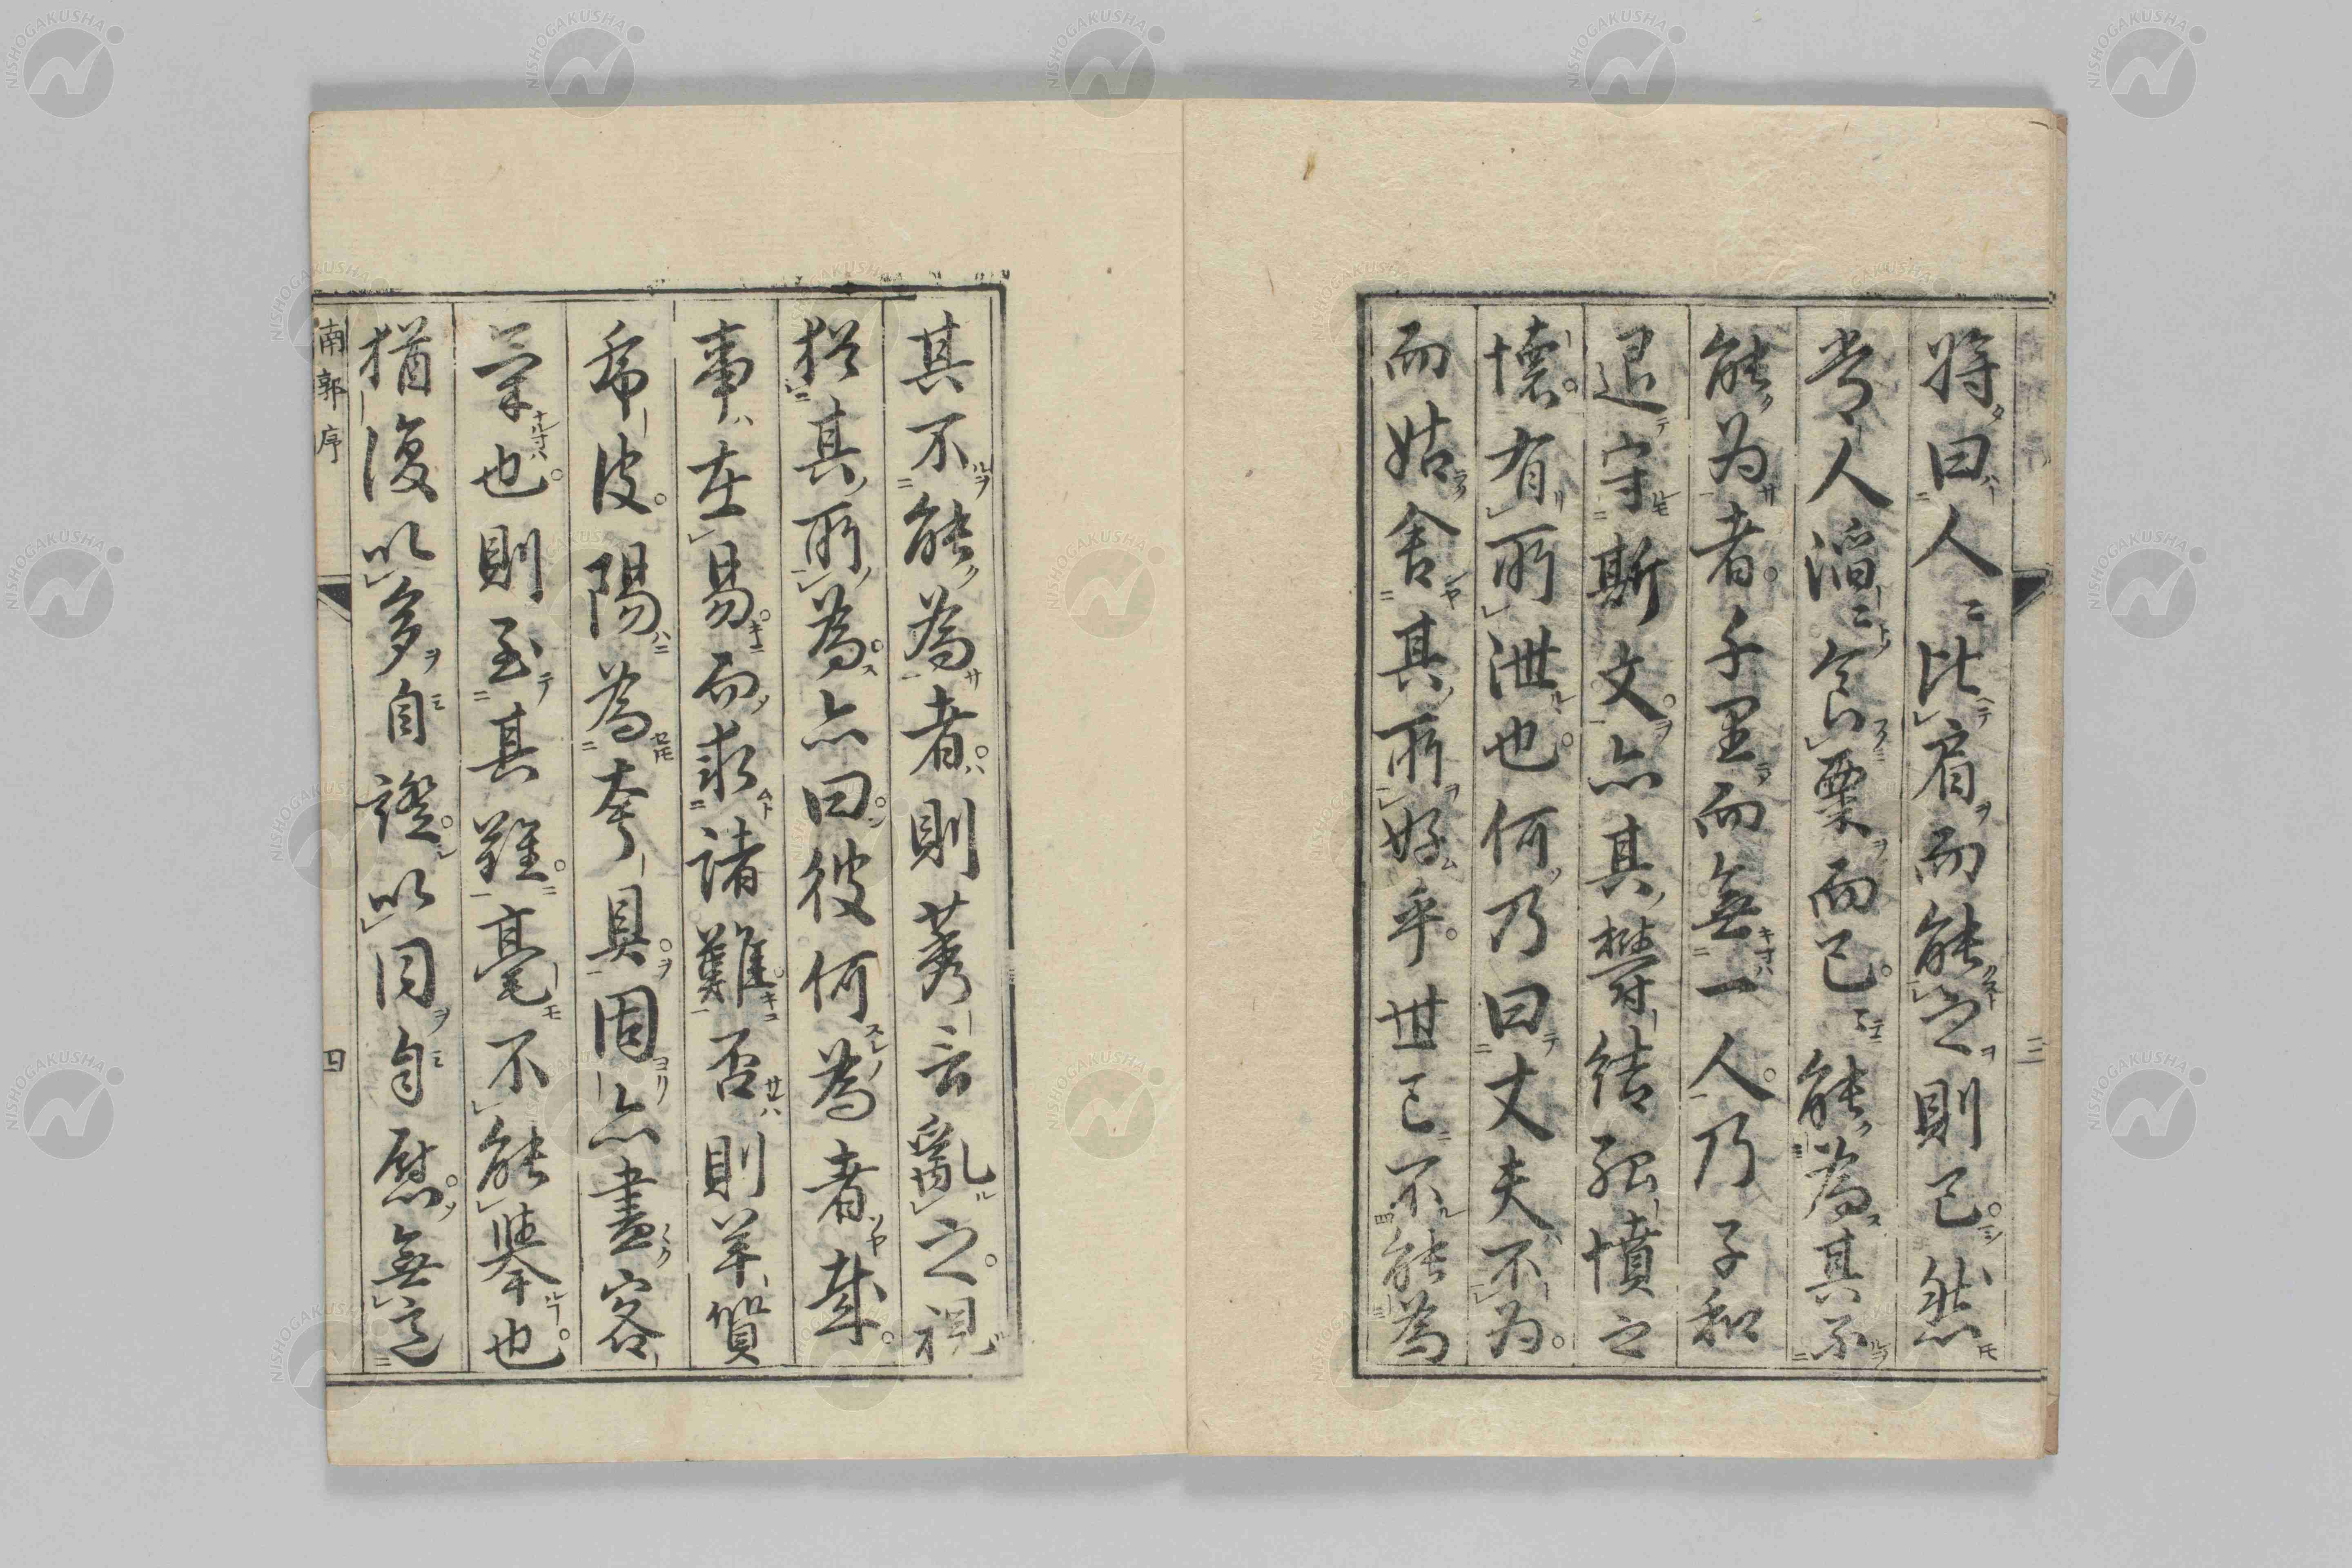 將曰人人比肩而能之則已然
常人滔滔食粟而已矣能為其不
能为者千里而無一人乃子和
退守斯文亦其欝結孤憤之
懷有所泄也何乃曰丈夫不为
而姑舍其所好乎世已不能為
三
其不能為者則莠言亂之視
猶其所為亦曰彼何為者哉
事在易而求諸難否則羊質
虎皮陽為夸具固亦盡客
氣也則至其難毫不能舉也
猶復以多自證以同自慰無它
南郭序
四
NISHOGAKUSHA